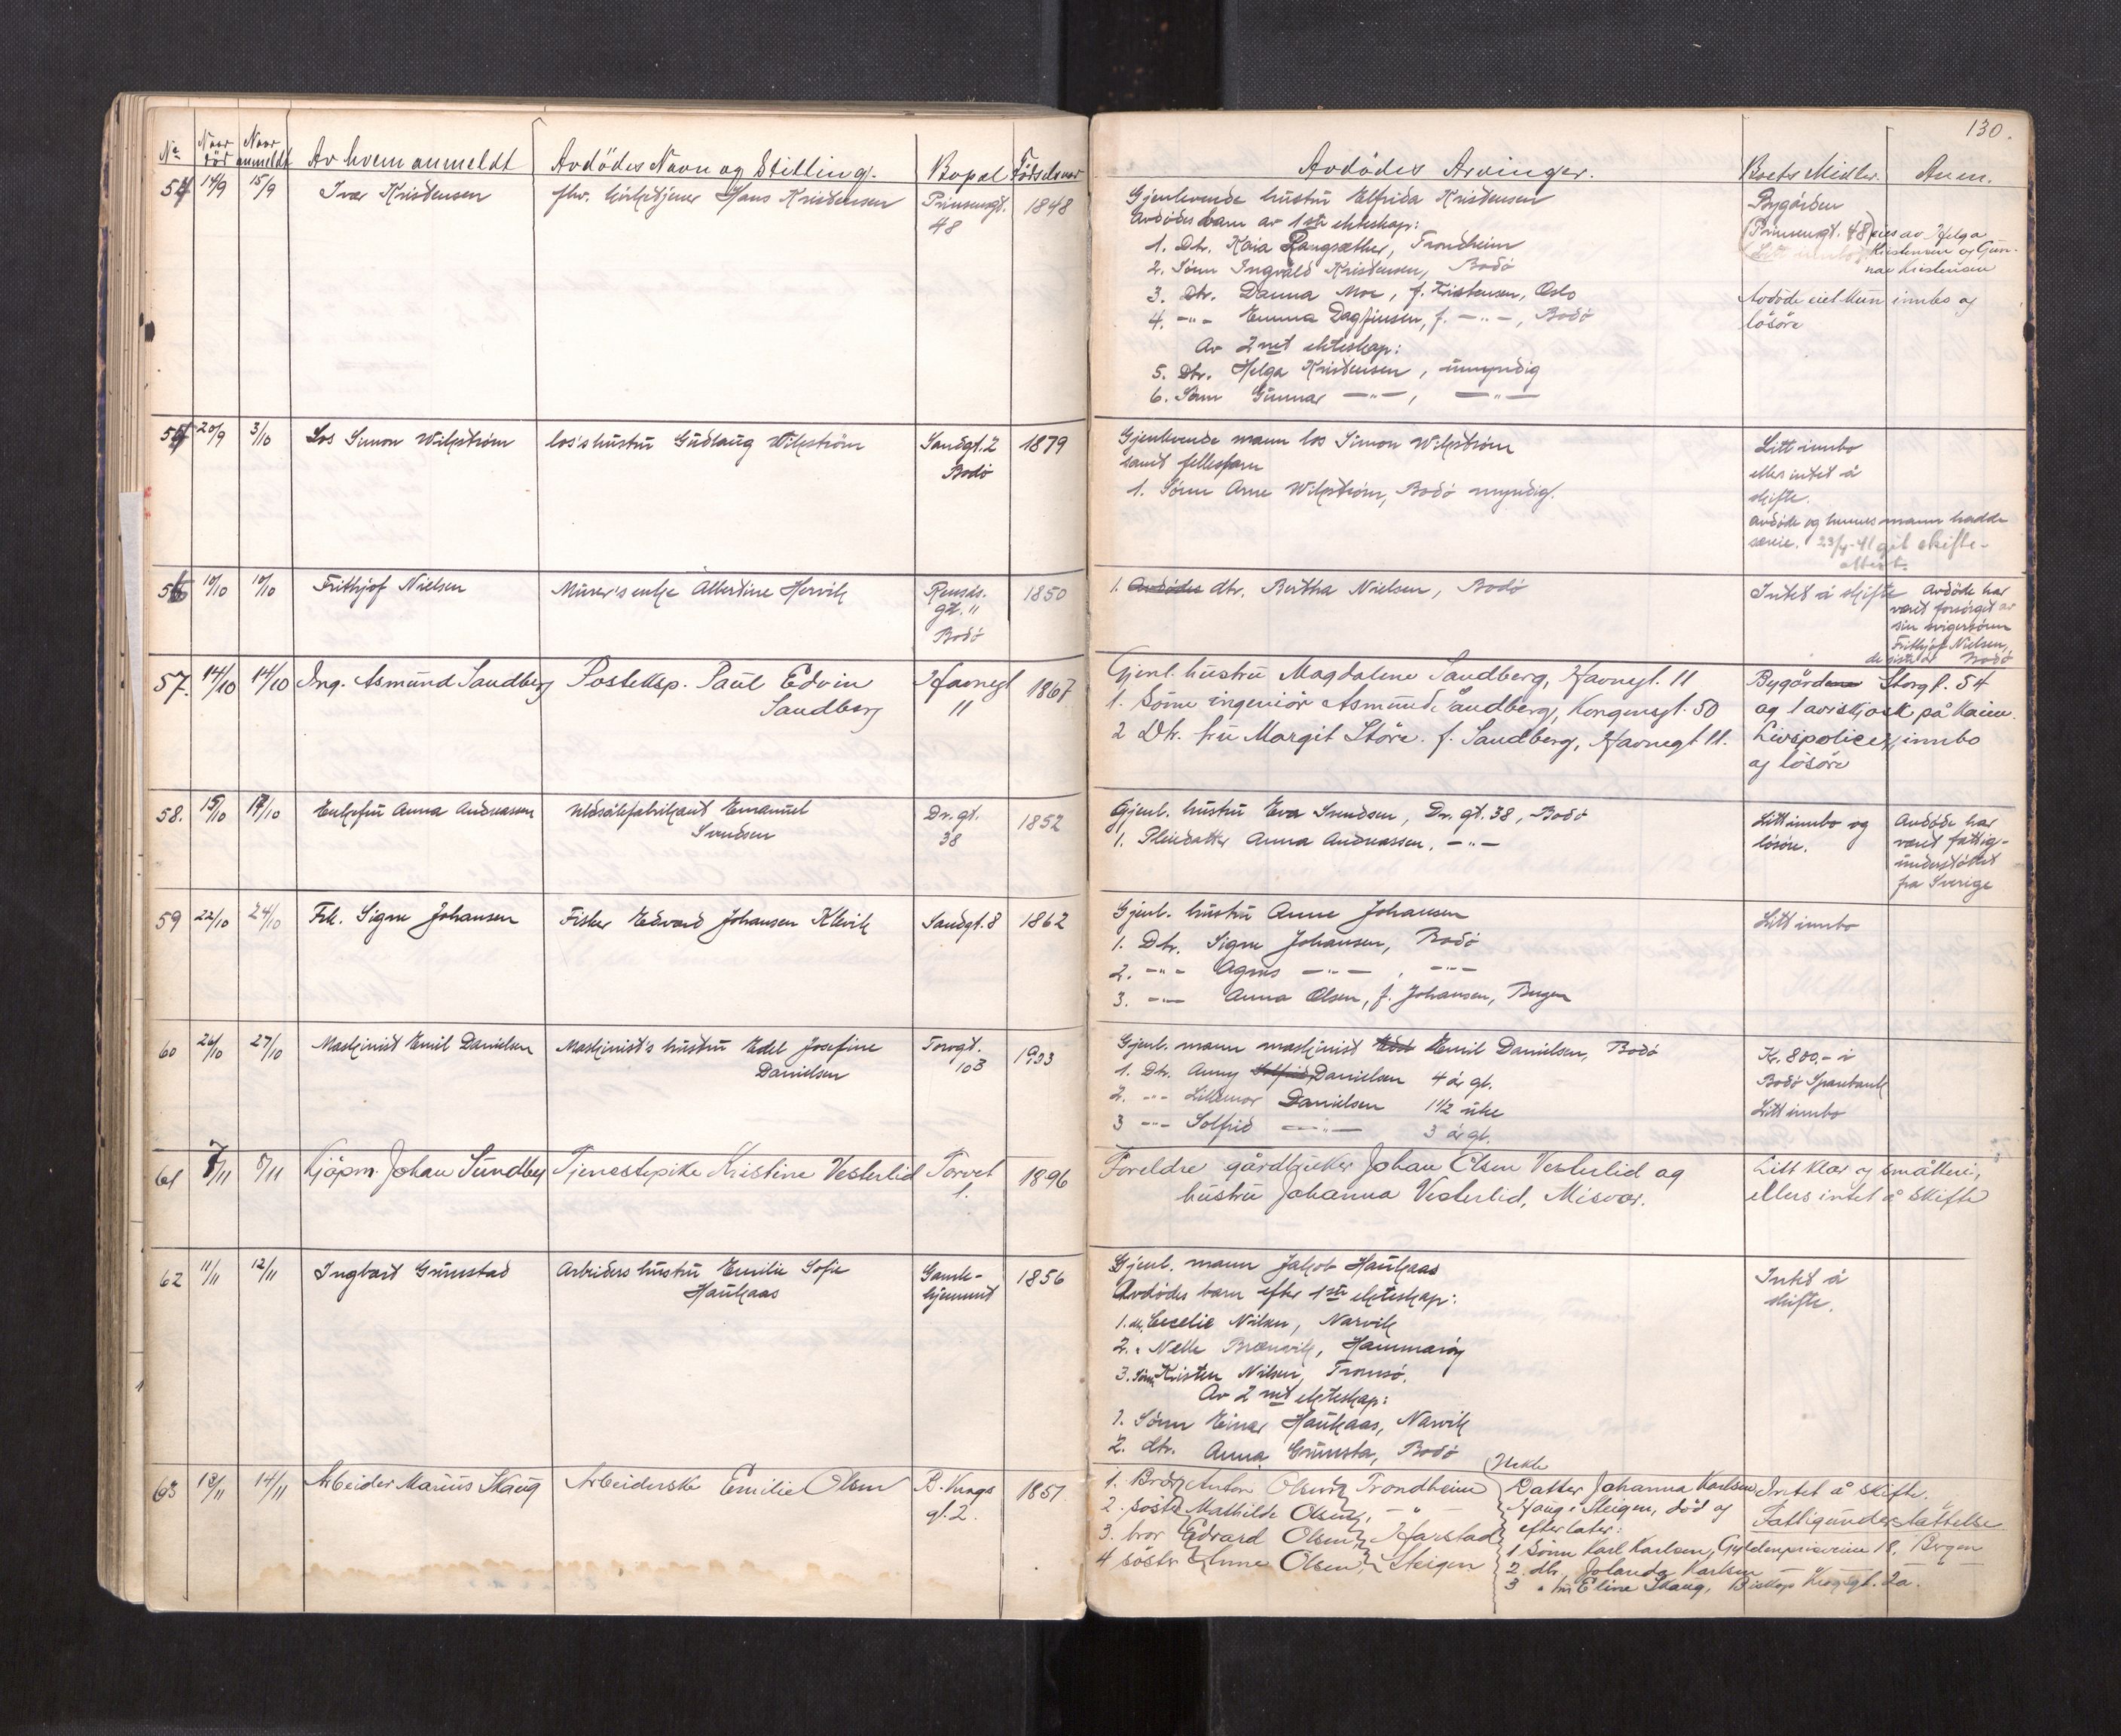 130.
No Naar död Naar anmeldt Av hvem anmeldt Avdödes Navn og Stilling. Bopæl Födselsaar Avdödes Arvinger. Boets Midler. Anm.
54 14/9 15/9 Ivar Kristensen fhv. kirketjener Hans Kristensen Prinsensgt. 1848
48
Gjenlevende hustru Elfrida Kristensen
Avdödes barn av 1ste ekteskap:
1. Dtr. Kaia Rangsæther, Trondheim
2. Sönn Ingvald Kristensen, Bodö
3. Dtr. Danna Moe, f. Kristensen, Oslo
4. -"- Emma Dagfinsen, f. -"-, Bodö
Av 2net ekteskap:
5. Dtr. Helga Kristensen, umyndig
6. Sönn Gunnar -"-, -"-
Bygården
(Prinsensgt. 48) eies av Helga
Kristensen og Gun-
nar Kristensen
Avdöde eiet kun innbo og
lösöre
55 20/9 3/10 Los Simon Wikström los's hustru Gudlaug Wikström Sandgt. 2 1879
Bodö
Gjenlevende mann los Simon Wikström
samt fellesbarn
1. Sönn Arne Wikström, Bodö myndig.
Litt innbo
ellers intet å
skifte.
avdöde og hennes mann hadde
særeie. 23/4-41 git skifte-
attest.
56 10/10 10/10 Frithjof Nielsen Murer's enke Albertine Hervik Rensås. 1850
gt. 11
Bodö
1. Avdödes dtr. Bertha Nielsen, Bodö
Intet å skifte
Avdöde har
været forsörget av
sin svigersönn
Frithjof Nielsen,
de siste år Bodö
57. 14/10 14/10 Ing. Asmund Sandberg Posteksp. Paul Edvin Havnegt 1867
Sandberg 11
Gjenl. hustru Magdalene Sandberg, Havnegt. 11
1. Sönn ingeniör Asmund Sandberg, Kongensgt. 50
2 Dtr. fru Margit Störe. f. Sandberg, Havnegt 11.
Bygården Storgt. 54
og 1 aviskjosk på kaien.
Livspolice, innbo
og lösöre
58. 15/10 17/10 Enkefru Anna Andreassen uldsåkfabrikant Emanuel Dr. gt. 1852
Svendsen 38
Gjenl. hustru Eva Svendsen, Dr. gt. 38, Bodö
1. Pleiedatter Anna Andreassen, -"-
Litt innbo og
lösöre.
Avdöde har
været fattig-
understöttet
fra Sverige
59 22/10 24/10 Frk. Signe Johansen Fisker Edvard Johansen Klevik Sandgt. 8 1862
Gjenl. hustru Anne Johansen
1. Dtr. Signe Johansen, Bodö
2. -"- Agnes -"-, -"-
3. -"- Anna Olsen, f. Johansen, Bergen
Litt innbo
60 26/10 27/10 Maskinist Emil Danielsen Maskinist's hustru Edel Josefine Torvgt. 1903
Danielsen 10 B
Gjenl. mann maskinist Emil Danielsen, Bodö
1. Dtr. Anny Solfrid Danielsen 4 år gl.
2. -"- Lillemor Danielsen 1 1/2 uke
3 -"- Solfrid -"- 3 år gl.
Kr. 800.- i
Bodö Sparebank
Litt innbo
61 7/11 8/11 Kjöpm. Johan Sundberg Tjenestepike Kristine Vesterlid Torvet 1896
1.
Foreldre gårdbruker Johan Olsen Vesterlid og
hustru Johanna Vesterlid, Misvær.
Litt klær og småtteri,
ellers intet å skifte
62 11/11 12/11 Ingvart Grimstad Arbeiders hustru Emilie Sofie Gamle- 1856
Haukaas hjemmet
Gjenl. mann Jakob Haukaas
Avdödes barn efter 1ste ekteskap:
1. dtr. Cecelie Nilsen, Narvik
2. " Nelle Brænvik, Hammaröy
3. sönn Kristen Nilsen, Tromsö.
Av 2net ekteskap:
1. Sönn Einar Haukaas, Narvik
2. dtr. Anna Grimsta, Bodö
Intet å
skifte.
63 13/11 14/11 Arbeider Marius Skaug Arbeiderske Emilie Olsen B. Krogs 1851.
gt. 2.
1. Bror Anton Olsen, Trondheim
2. söster Mathilde Olsen, -"-
3. bror Edvard Olsen, Harstad
4 söster Anne Olsen, Steigen
Datter Johanna Karlsen
Haug i Steigen, död og
efterlater:
1 Sönn Karl Karlsen, Gyldenprisveien 18, Bergen
2. dtr. Jolanda Karlsen
3 " fru Eline Skaug, Biskop Krogsgt. 2a.
Intet å skifte.
Fattigunderstöttelse